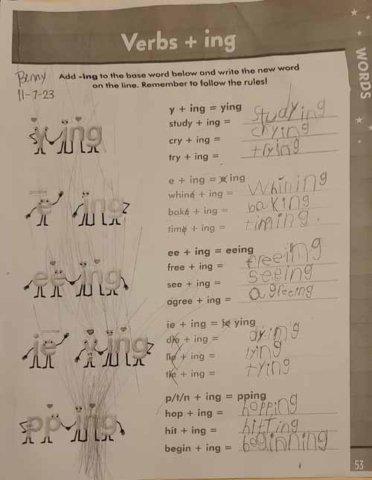 Verbs + ing
WORDS
Benny
11-7-23
Add -ing to the base word below and write the new word
on the line. Remember to follow the rules!
y + ing = ying
study + ing = studying
cry + ing = crying
try + ing = trying
y ing
e + ing = e ing
whine + ing = whining
bake + ing = baking
time + ing = timing.
e ing
ee + ing = eeing
free + ing = freeing
see + ing = seeing
agree + ing = agreeing
ee ing
ie + ing = ie ying
die + ing = dying
lie + ing = lying
tie + ing = tying
ie ying
p/t/n + ing = pping
hop + ing = hopping
hit + ing = hitting
begin + ing = beginning
pp ing
53